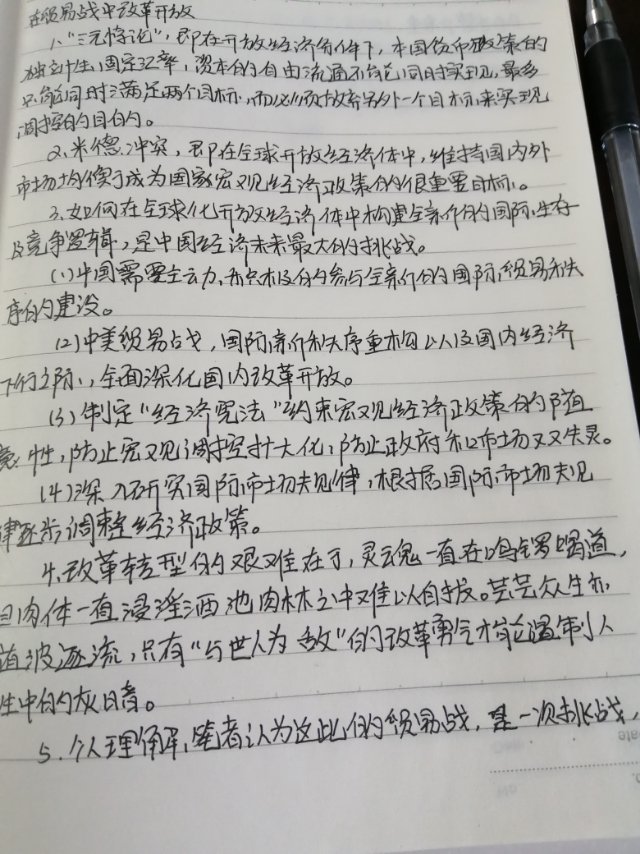 在贸易战中改革开放
1."三元悖论",即在开放经济条件下,本国货币政策的
独立性,固定汇率,资本的自由流通不能同时实现,最多
只能同时满足两个目标,而必须放弃另外一个目标来实现
调控的目的。
2.米德冲突,即在全球开放经济体中,维持国内外
市场均衡于成为国家宏观经济政策的很重要目标。
3.如何在全球化开放经济体中构建全新的国际生存
及竞争逻辑,是中国经济未来最大的挑战。
(1)中国需要主动,积极的参与全新的国际贸易秩
序的建设。
(2)中美贸易战,国际新秩序重构以及国内经济
下行之际,全面深化国内改革开放。
(3)制定"经济宪法"约束宏观经济政策的随
意性,防止宏观调控扩大化,防止政府和市场双失灵。
(4)深入研究国际市场规律,根据国际市场规
律逐步调整经济政策。
4.改革转型的艰难在于,灵魂一直在鸣锣喝道,
但肉体一直浸淫酒池肉林之中难以自拔。芸芸众生亦
随波逐流,只有"与世人为敌"的改革勇气才能遏制人
性中的灰暗。
5.个人理解,笔者认为这此的贸易战,是一次挑战,